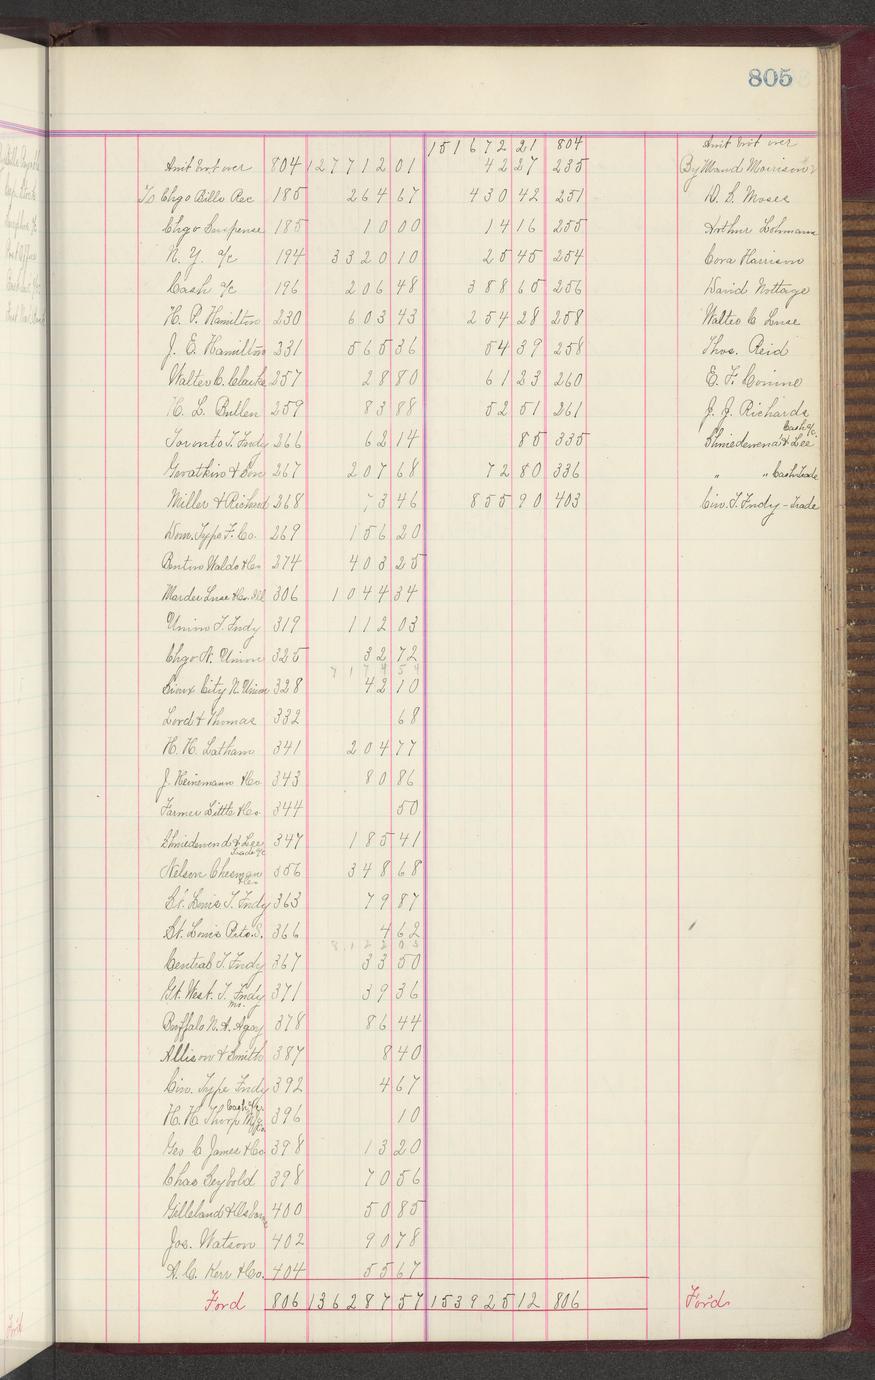 805
151672 21 804 Amt brot over
Amt brot over 804 127712 01 42 27 235 By Maud Morrison
To Chgo Bills Rec 185 264 67 430 42 251 D. S. Moses
Chgo Suspense 185 10 00 14 16 255 Arthur Lohmann
N. Y. a/c 194 3320 10 25 45 254 Cora Harrison
Cash a/c 196 206 48 388 65 256 David Nottage
H. P. Hamilton 230 603 43 254 28 258 Walter C Luse
J. E. Hamilton 231 565 36 54 39 258 Thos. Reid
Walter C. Clarke 257 28 80 61 23 260 E. F. Conine
H. L. Bullen 259 83 88 52 51 261 J. J. Richards
Toronto T. Fndy 266 62 14 85 335 Shniedewend & Lee Cash a/c.
& Son 267 207 68 72 80 336 " " Cash Trade
Miller & Richard 268 73 46 855 90 403 Cin. T. Fndy - Trade
Dom. Type F. Co. 269 156 20
Benton Waldo & Co 274 403 25
Marder Luse & Co. Ill 306 1044 34
Union T. Fndy 319 112 03
Chgo N. Union 325 32 72
7174 54
Sioux City N. Union 328 42 10
Lord & Thomas 332 68
H. H. Latham 341 204 77
J. Heinemann & Co 343 80 86
Farmer Little & Co. 344 50
Shniedewend & Lee Trade a/c 347 185 41
Nelson Chesman & Co 356 348 68
St. Louis T. Fndy 363 79 87
St. Louis Ptrs. S. 366 4 62
8122 03
Central T. Fndy 367 33 50
Gt. West. T. Fndy 371 39 36
Buffalo N. A. Agcy 378 86 44
Allison & Smith 387 8 40
Cin. Type Fndy 392 4 67
H. H. Thorp Mfg Co. Cash a/c. 396 10
Geo C James & Co. 398 13 20
Chas Seybold 398 70 56
Gilleland & Osborne 400 50 85
Jos. Watson 402 90 78
A. C. Kerr & Co. 404 55 67
Ford 806 136287 57 153925 12 806 Ford